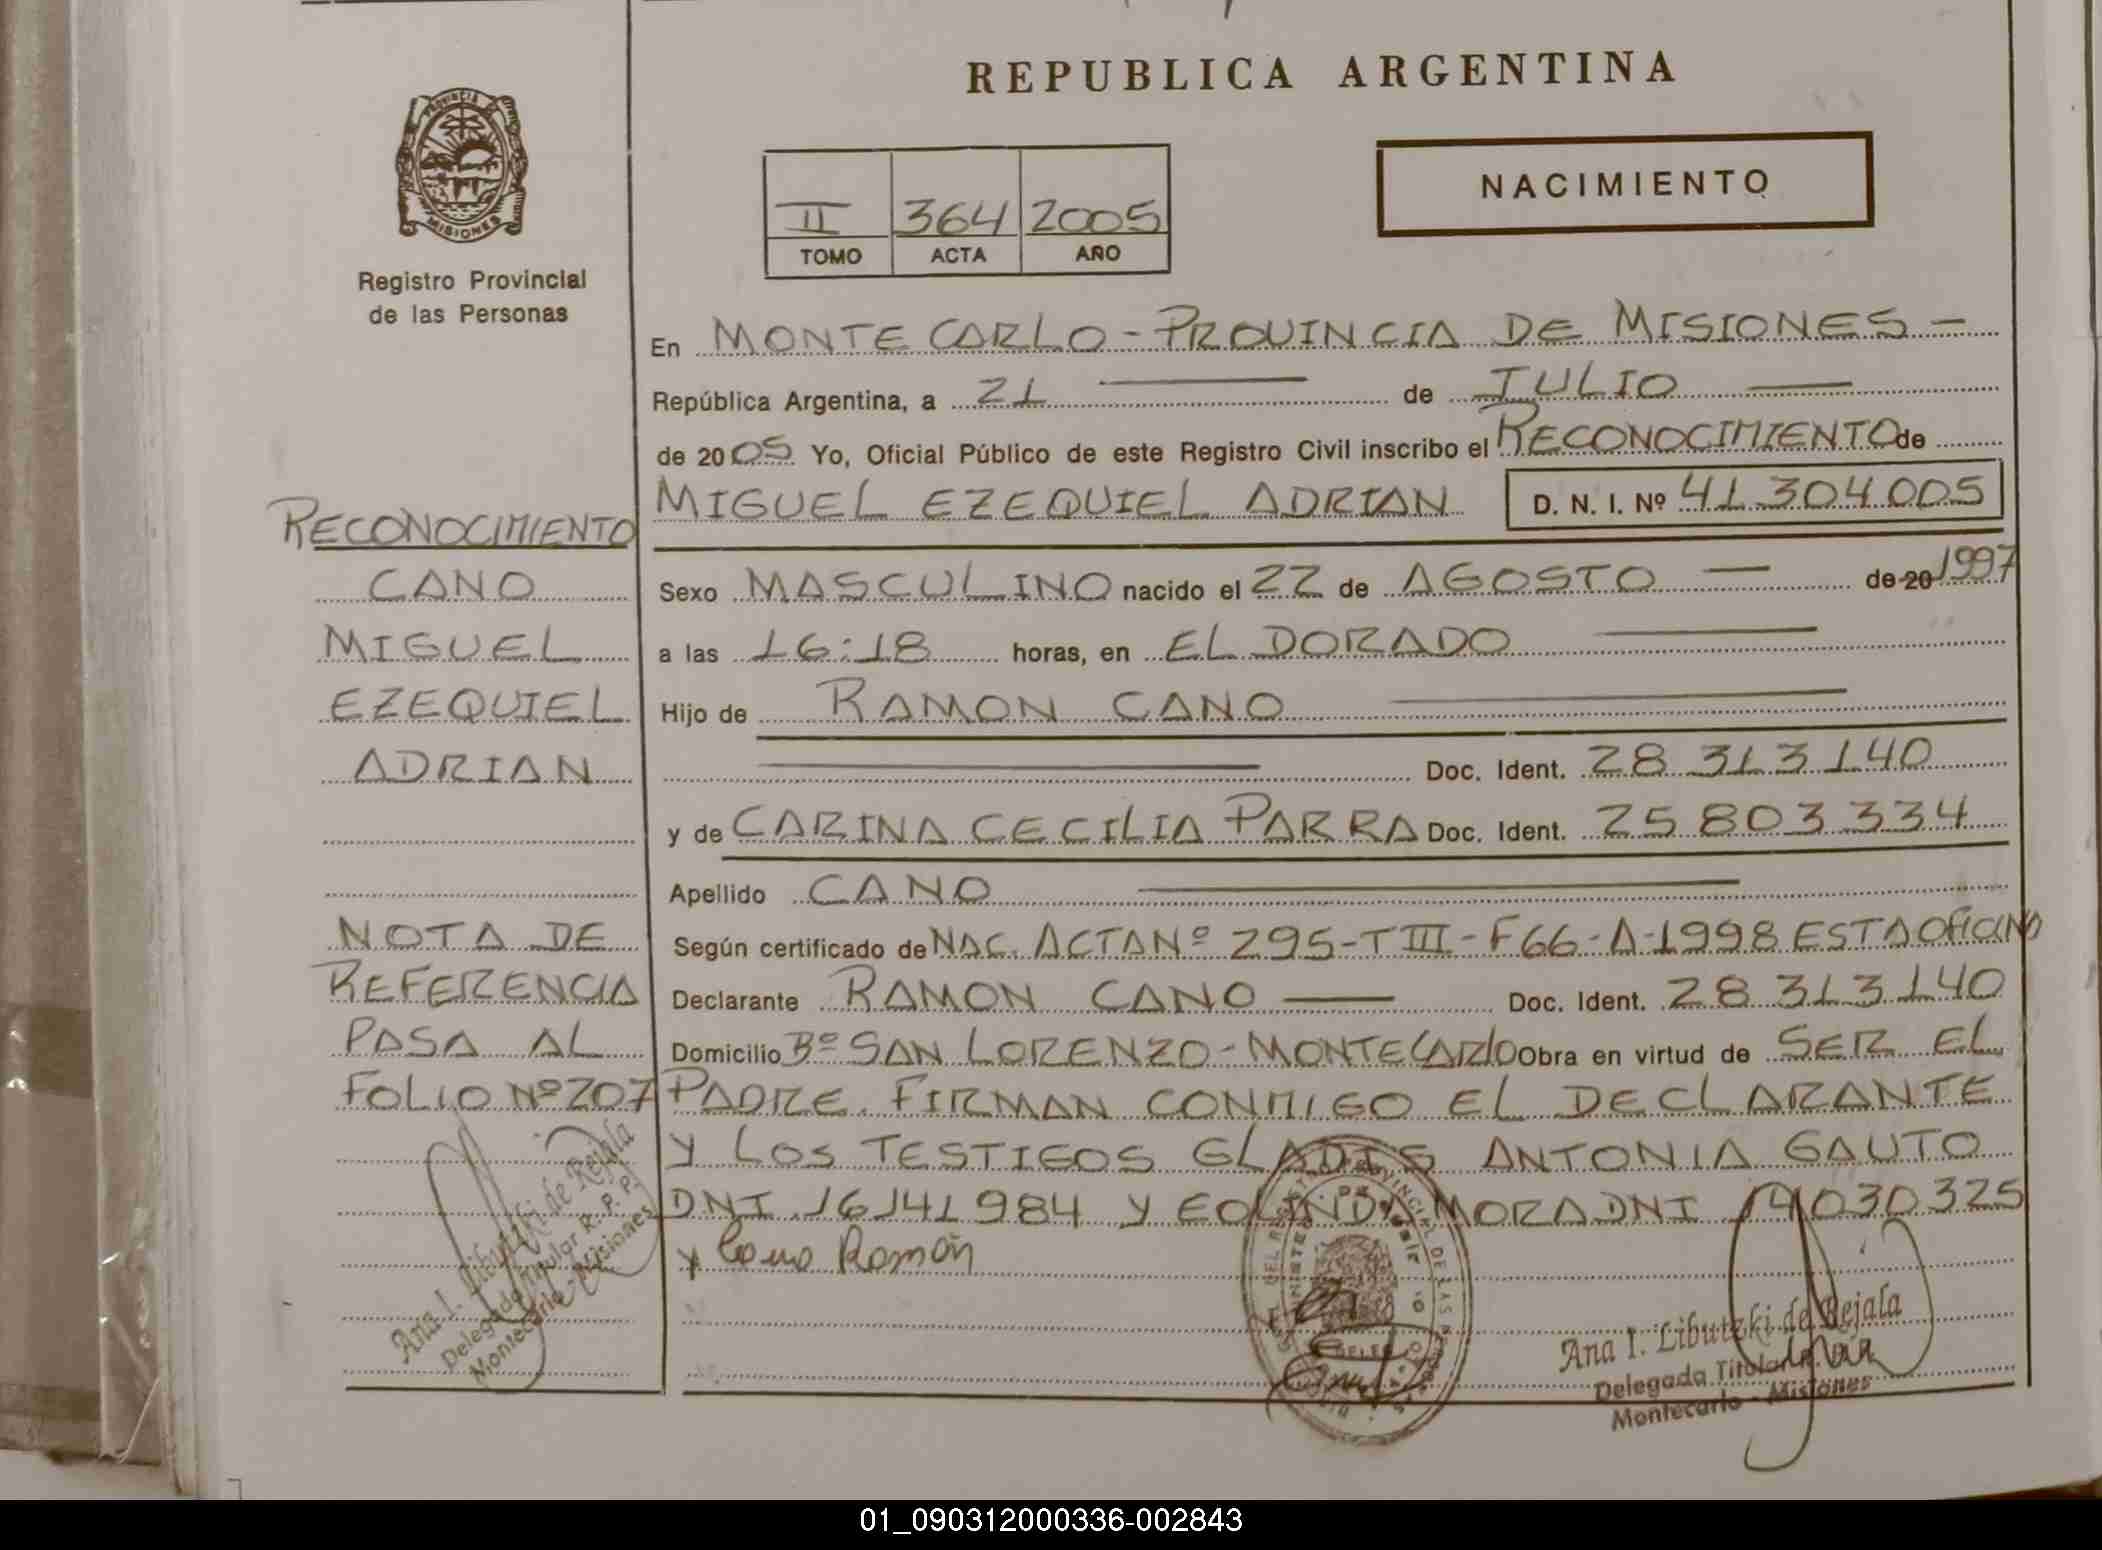 REPUBLICA ARGENTINA
PROVINCIA DE
MISIONES
Registro Provincial
de las Personas
NACIMIENTO
II 364 2005
TOMO ACTA AÑO
En MONTE CARLO - PROVINCIA DE MISIONES -
República Argentina, a 21 de JULIO
de 2005 Yo, Oficial Público de este Registro Civil inscribo el RECONOCIMIENTO de
MIGUEL EZEQUIEL ADRIAN D. N. I. Nº 41.304.005
Sexo MASCULINO nacido el 22 de AGOSTO de 20 1997
a las 16:18 horas, en EL DORADO
Hijo de RAMON CANO
Doc. Ident. 28 313 140
y de CARINA CECILIA PARRA Doc. Ident. 25 803 334
Apellido CANO
Según certificado de NAC. ACTA Nº 295-T III-F66-A-1998 ESTA OFICINA
Declarante RAMON CANO Doc. Ident. 28 313 140
Domicilio Bº SAN LORENZO - MONTECARLO Obra en virtud de SER EL
PADRE. FIRMAN CONMIGO EL DECLARANTE
Y LOS TESTIGOS GLADIS ANTONIA GAUTO
DNI 16141984 Y EOLINDA MORA DNI 14030325
x Cano Ramón
Ana I. Libutzki de Rejala
Delegada Titular
Montecarlo - Misiones
RECONOCIMIENTO
CANO
MIGUEL
EZEQUIEL
ADRIAN
NOTA DE
REFERENCIA
PASA AL
FOLIO Nº 207
Ana I. Libutzki de Rejala
Delegada Titular R. P. P.
Montecarlo - Misiones
01_090312000336-002843